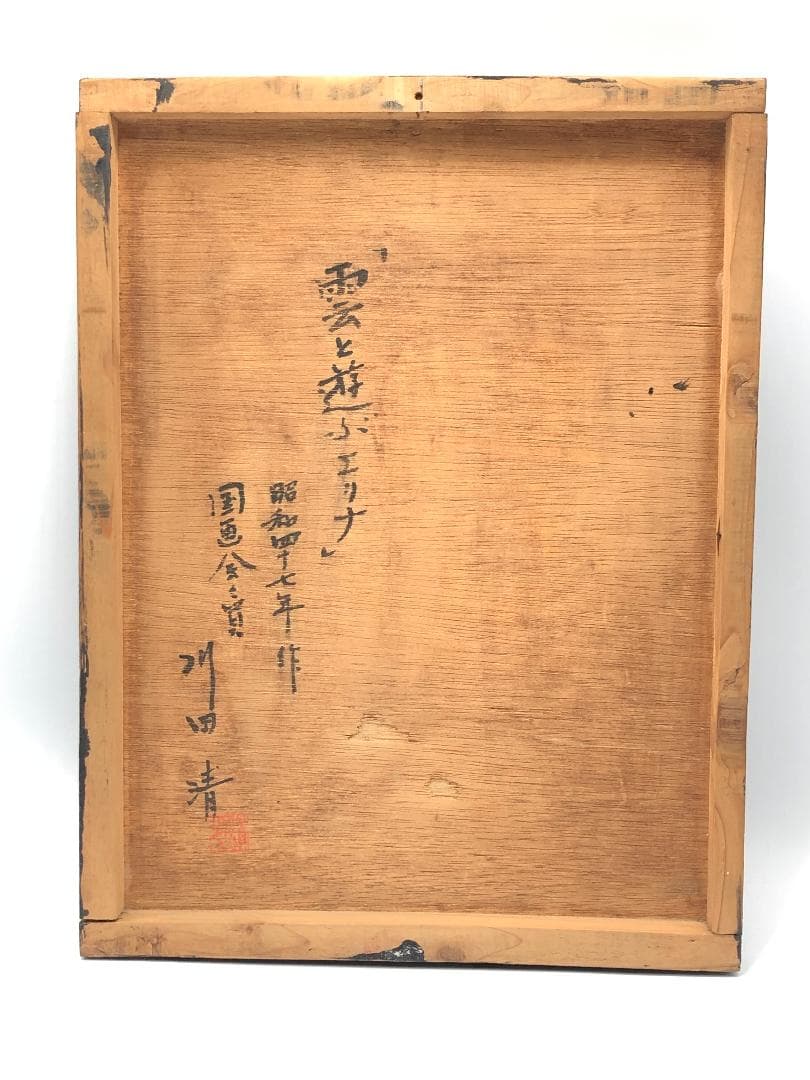 「雲と遊ぶエリナ」
昭和四十七年作
国画会々員
川田清